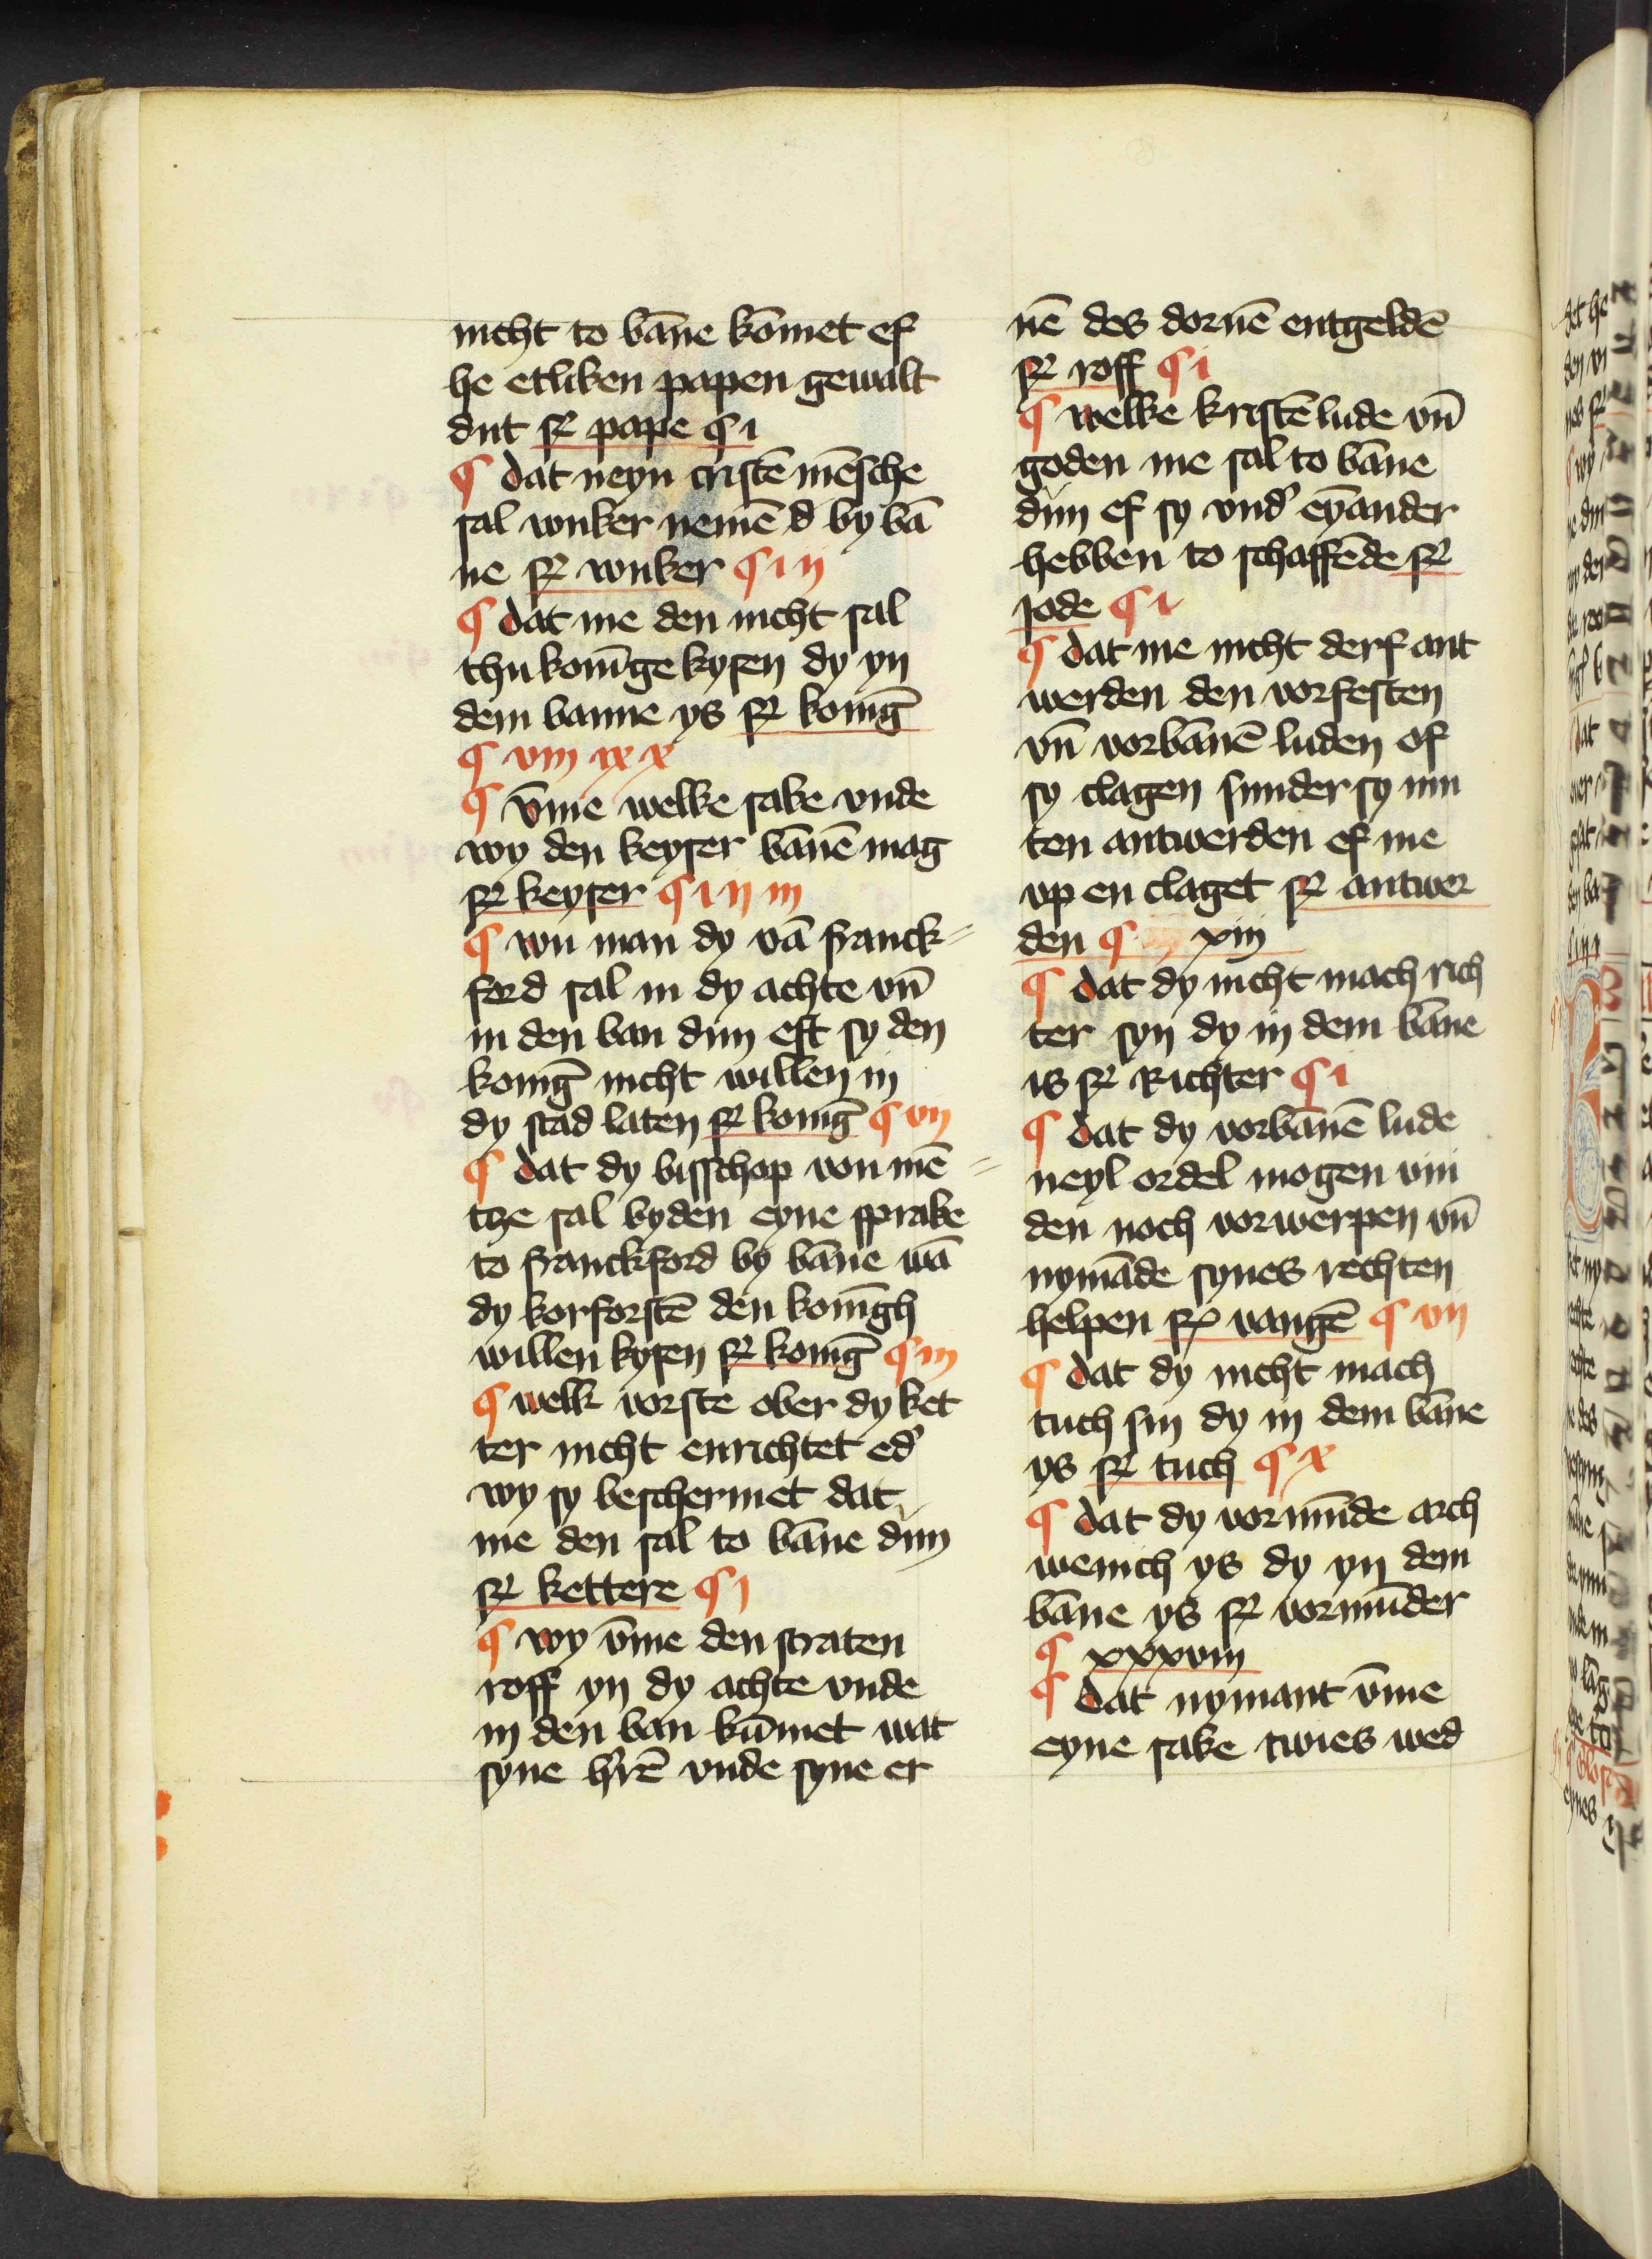 nicht to ba̅ne ko̅met ef
he etliken papen gewalt
dut s͛ pape ¶ i
¶ dat neyn criste̅ me̅sche
sal wuker neme̅ d by ba̅
ne s͛ wuker ¶ i ij
¶ dat me den nicht sal
thu koni̅ge kysen dy yn
dem banne ys s͛ konig̅
¶ viii ix x
¶ v̅me welke sake vnde
wy den keyser ba̅ne̅ mag
s͛ keyser ¶ i ij iij
¶ wu man dy va̅ franck⸗
ford sal in dy achte vn̅
in den ban dun eft sy den
konig̅ nicht willen in
dy stad laten s͛ konig̅ ¶ vij
¶ dat dy bisschop von me̅⸗
tze sal byden eyne sprake
to franckford by ba̅ne wa̅
dy korforste̅ den koni̅gh
willen kysen s͛ konig̅ ¶ iij
¶ welk vorste ober dy ket
ter nicht enrichtet ed͛
wy sy beschermet dat
me den sal to ba̅ne dun
s͛ kettere ¶ j
¶ wy v̅me den straten
roff yn dy achte vnde
in den ban ku̅met wat
syne h͛re̅ vnde syne er
ne̅ des dorne̅ entgelde̅
s͛ roff ¶ i
¶ welke kriste̅ lude vn̅
goden me sal to ba̅ne
dun ef sy vnd͛ ey̅ander
hebben to schaffe̅de s͛
jode ¶ i
¶ dat me nicht derf ant
werden den vorfesten
vn̅ vorba̅ne̅ luden of
sy clagen sunder sy mu
ten antwerden ef me
vp en claget s͛ antwer
den ¶ xiij
¶ dat dy nicht mach rich
ter syn dy in dem ba̅ne
is s͛ Richter ¶ i
¶ dat dy vorba̅ne̅ lude
neyl ordel mogen vin
den noch vorwerpen vn̅
nyma̅de synes rechten
helpen s͛ vange̅ ¶ vij
¶ dat dy nicht mach
tuch sin dy in dem ba̅ne
ys s͛ tuch ¶ x
¶ dat dy vormu̅de arch
wenich ys dy yn dem
ba̅ne ys s͛ vormu̅der
¶ xxxviij
¶ dat nymant v̅me
eyne sake twies wed